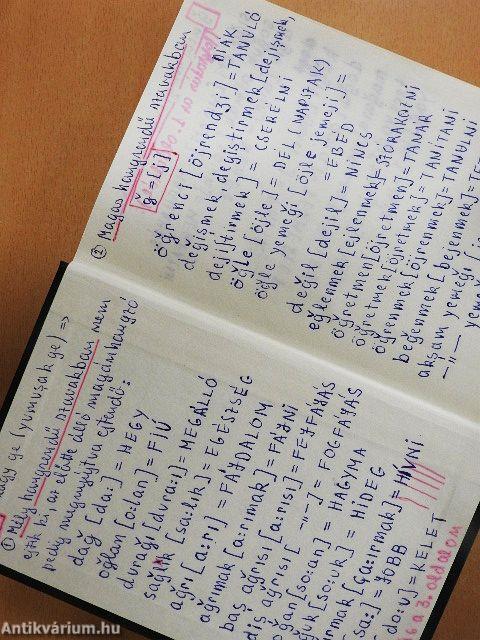 nagy ge (yumuşak ge) =>
① Mély hangrendű szavakban nem
ejtik ki, az előtte álló magánhangzó
pedig megnyújtva ejtendő:
dağ [da:] = HEGY
oğlan [o:lan] = FIÚ
durağı [dura:ı] = MEGÁLLÓ
sağlık [sa:lık] = EGÉSZSÉG
ağrı [a:rı] = FÁJDALOM
ağrımak [a:rımak] = FÁJNI
baş ağrısı [a:rısı] = FEJFÁJÁS
diş ağrısı [ —"— ] = FOGFÁJÁS
soğan [so:an] = HAGYMA
[so:uk] = HIDEG
[ça:ırmak] = HÍVNI
[sa:] = JOBB
[do:u] = KELET
a 3. oldalon
② Magas hangrendű szavakban
ğ = [j]
öğrenci [öjrendzsi] = DIÁK TANULÓ
değişmek, değiştirmek [dejismek,
dejistirmek] = CSERÉLNI
öğle [öjle] = DÉL (NAPSZAK)
öğle yemeği [öjle jemeji] =
= EBÉD
değil [dejil] = NINCS
eğlenmek [ejlenmek] = SZÓRAKOZNI
öğretmen [öjretmen] = TANÁR
öğretmek [öjretmek] = TANÍTANI
öğrenmek [öjrenmek] = TANULNI
beğenmek [bejenmek] =
akşam yemeği
—"— yeme
Antikvárium.hu